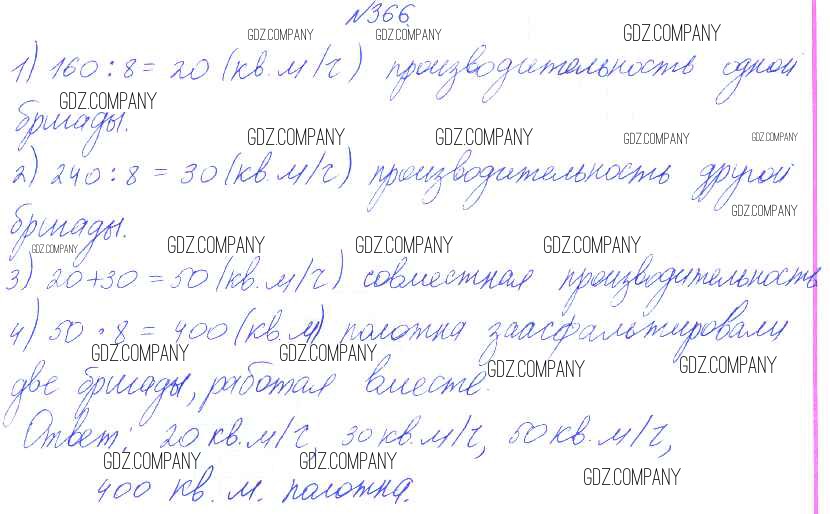 №366
GDZ.COMPANY GDZ.COMPANY GDZ.COMPANY
1) 160 : 8 = 20 (кв. м/ч) производительность одной
GDZ.COMPANY
бригады.
GDZ.COMPANY GDZ.COMPANY GDZ.COMPANY GDZ.COMPANY
2) 240 : 8 = 30 (кв. м/ч) производительность другой
GDZ.COMPANY
бригады.
GDZ.COMPANY GDZ.COMPANY GDZ.COMPANY GDZ.COMPANY
3) 20+30 = 50 (кв. м/ч) совместная производительность
4) 50 · 8 = 400 (кв. м) полотна заасфальтировали
GDZ.COMPANY GDZ.COMPANY GDZ.COMPANY GDZ.COMPANY
две бригады, работая вместе.
Ответ: 20 кв. м/ч, 30 кв. м/ч, 50 кв. м/ч,
GDZ.COMPANY GDZ.COMPANY GDZ.COMPANY
400 кв. м. полотна.